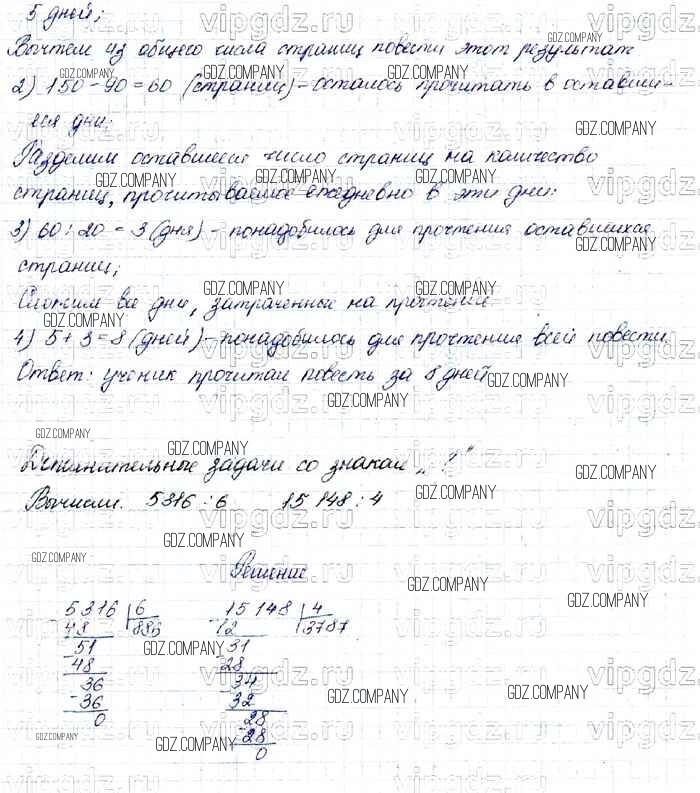 5 дней;
Вычтем из общего числа страниц повести этот результат
2) 150 - 90 = 60 (страниц) - осталось прочитать в оставши-
еся дни;
Разделим оставшееся число страниц на количество
страниц, прочитываемое ежедневно в эти дни:
3) 60 : 20 = 3 (дня) - понадобилось для прочтения оставшихся
страниц;
Сложим все дни, затраченные на прочтение
4) 5 + 3 = 8 (дней) - понадобилось для прочтения всей повести
Ответ: ученик прочитал повесть за 8 дней
Дополнительные задачи со знаком „?"
Вычисли. 5316 : 6 15 148 : 4
Решение
5316 6 15148 4
48 886 12 3787
51 31
48 28
36 34
36 32
0 28
28
0
GDZ.COMPANY
vipgdz.ru